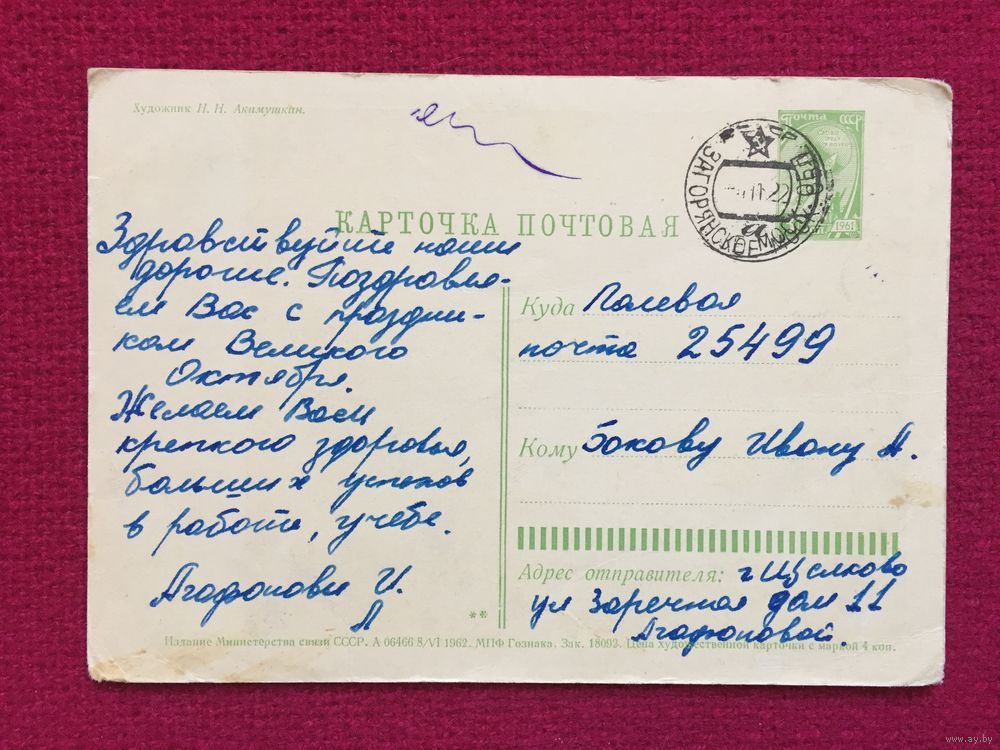 Художник Н. Н. Акамушкин.
ПОЧТА СССР
1961
ЗАГОРЯНСКОЕ МОСК.
КАРТОЧКА ПОЧТОВАЯ
Здравствуйте наши
дорогие. Поздравля-
ем Вас с праздни-
ком Великого
Октября.
Желаем Вам
крепкого здоровья,
больших успехов
в работе, учебе.
Агафоновы И.
Л
Куда Полевая
почта 25499
Кому Бокову Ивану А.
Адрес отправителя: г Щелково
ул Заречная дом 11
Агафоновой.
**
Издание Министерства связи СССР. А 06466 8/VI 1962. МПФ Гознака. Зак. 18093. Цена художественной карточки с маркой 4 коп.
www.ay.by